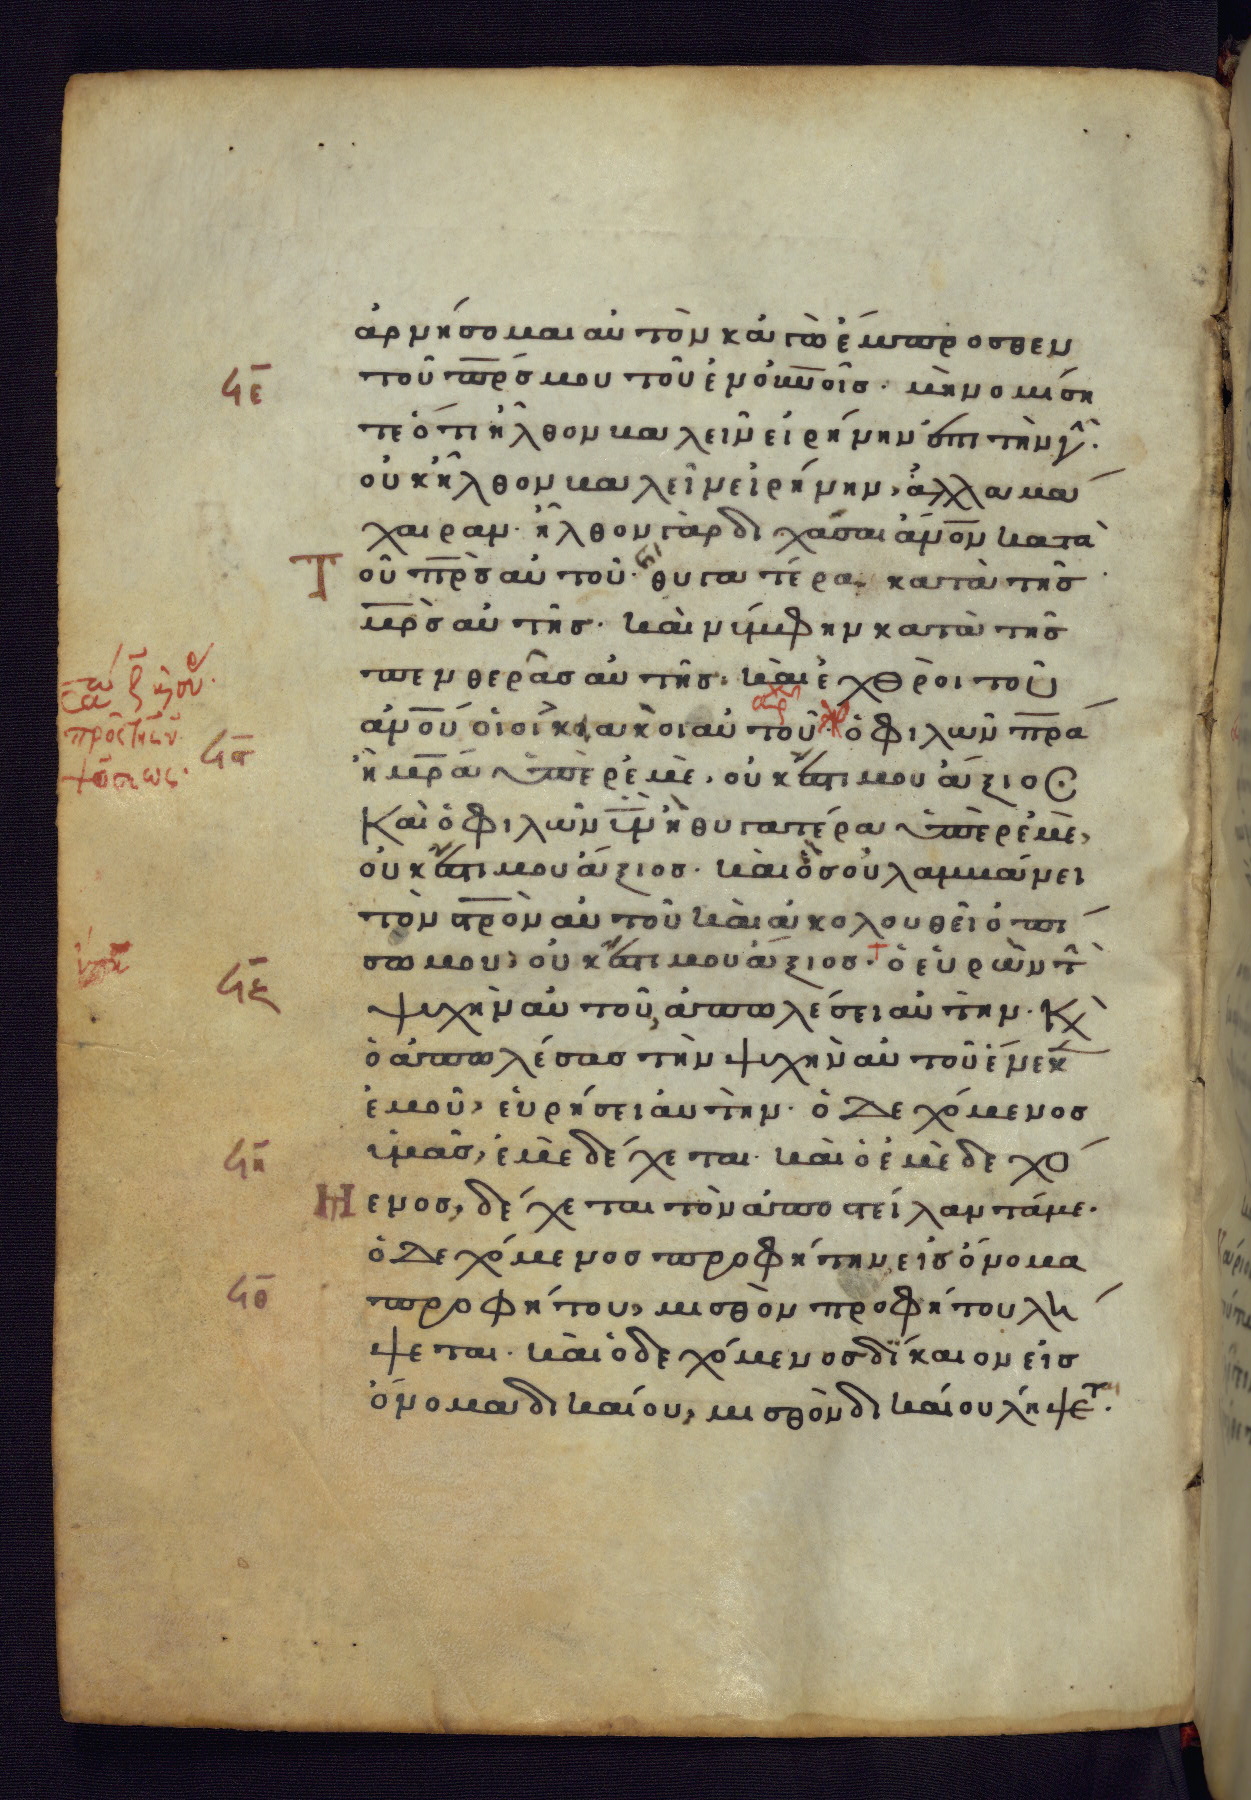 ἀρνήσομαι αὐτὸν κἀγὼ ἔμπροσθεν
τοῦ πρ̅ς μου τοῦ ἐν οὐνοῖς· μὴ νομίση
τε ὅτι ἦλθον βαλεῖν εἰρήνην ἐπι τὴν γῆ·
οὐκ ἦλθον βαλεῖν εἰρήνην, ἀλλα μά
χαιραν· ἦλθον γὰρ διχάσαι ἀν̅ον κατὰ
Τ οῦ πρ̅ς αὐτοῦ· θυγατέρα κατὰ τῆς
μρ̅ς αὐτῆς· καὶ νύμφην κατὰ τῆς
πενθερᾶς αὐτῆς· καὶ ἐχθροὶ τοῦ
ἀν̅ου οἱ οἰκιακοὶ αὐτοῦ· ὁ φιλῶν πρ̅α
ἢ μρ̅α ὑπὲρ ἐμὲ, οὐκ ἔστι μου ἄξιος
Καὶ ὁ φιλῶν υἱ̅ν ἢ θυγατέρα ὑπὲρ ἐμὲ,
οὐκ ἔστι μου ἄξιος· καὶ ὃς οὐ λαμβάνει
τὸν στρ̅ον αὐτοῦ καὶ ἀκολουθεῖ ὀπί
σω μου, οὐκ ἔστι μου ἄξιος· ὁ εὑρὼν τὴ
ψυχὴν αὐτοῦ, ἀπολέσει αὐτὴν· Κ̀
ὁ ἀπολέσας τὴν ψυχὴν αὐτοῦ ἕνεκ
ἐμοῦ, εὑρήσει αὐτὴν· ὁ δεχόμενος
ὑμᾶς, ἐμὲ δέχεται· καὶ ὁ ἐμὲ δεχό
Μ ενος, δέχεται τὸν ἀποστείλαντά με·
ὁ δεχόμενος προφήτην εἰς ὄνομα
προφήτου, μισθὸν προφήτου λή
ψεται· καὶ ὁ δεχόμενος δίκαιον εἰς
ὄνομα δικαίου, μισθὸν δικαίου λήψετ·
ϟε
ϟϛ
ϟζ
ϟη
ϟθ